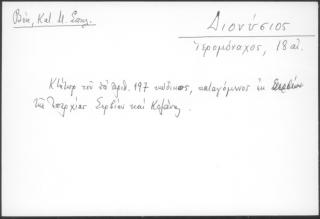 Βέη, Κατ. Μ. Σπηλ.
Διονύσιος
Ἱερομόναχος, 18 αἰ.
Κτήτωρ τοῦ ὑπ' ἀριθ. 197 κώδικος, καταγόμενος ἐκ Σερβίων
τῆς Ἐπαρχίας Σερβίων καὶ Κοζάνης.